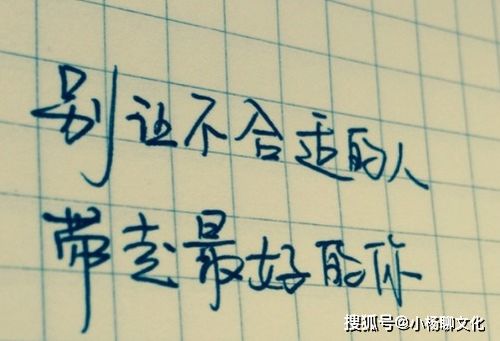 别让不合适的人
带走最好的你
搜狐号@小杨聊文化